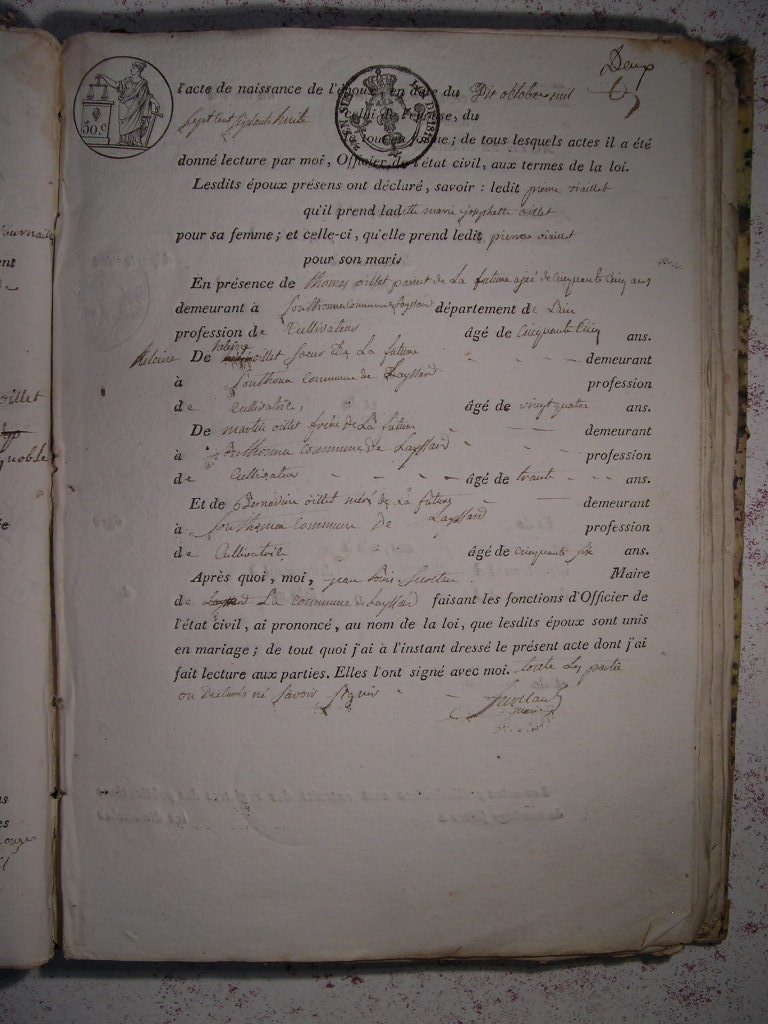 Deux
l'acte de naissance de l'époux, en date du Dix octobre mil
Sept Cent Soixante huite celui de l'épouse, du
tous en forme; de tous lesquels actes il a été
donné lecture par moi, Officier de l'état civil, aux termes de la loi.
Lesdits époux présens ont déclaré, savoir : ledit pierre viallet
qu'il prend laditte marie josephette oillet
pour sa femme; et celle-ci, qu'elle prend ledit pierre viallet
pour son mari.
En présence de thomas oillet parent de La future agé de Cinquante Cinq ans
demeurant à Southonna Commune de Layssard département de L'ain
profession de Cultivateur âgé de Cinquante Cinq ans.
De oillet soeur De La future demeurant
à Southona Commune de Layssard profession
de Cultivatrice, âgé de vingt quatre ans.
De oillet frère de La future demeurant
à Southonna Commune de Layssard profession
de Cultivateur âgé de trante ans.
Et de Bernardine oillet mère de La future demeurant
à Southonna Commune de Layssard profession
de Cultivatrice âgé de cinquante six ans.
Après quoi, moi, jean Louis Maire
de La commune de Layssard faisant les fonctions d'Officier de
l'état civil, ai prononcé, au nom de la loi, que lesdits époux sont unis
en mariage; de tout quoi j'ai à l'instant dressé le présent acte dont j'ai
fait lecture aux parties. Elles l'ont signé avec moi. toute Les partie
on Declarés né Savoir Signér
maire
50 c